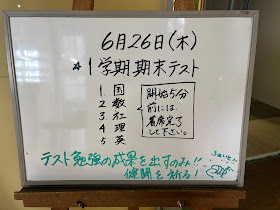 6月26日(木)
☆1学期期末テスト
1. 国
2. 数
3. 社
4. 理
5 英
開始5分
前には、
着席完了
して下さい。
テスト勉強の成果を出すのみ!!
健闘を祈る!